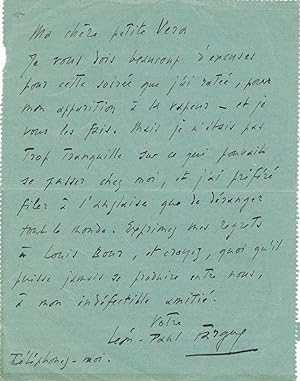 Ma chère petite Vera
Je vous dois beaucoup d'excuses
pour cette soirée que j'ai ratée, pour
mon apparition à la vapeur – et je
vous les fais. Mais je n'étais pas
trop tranquille sur ce qui pouvait
se passer chez moi, et j'ai préféré
filer à l'anglaise que de déranger
tout le monde. Exprimez mes regrets
à Louis Bour, et croyez, quoi qu'il
puisse jamais se produire entre nous,
à mon indéfectible amitié.
Votre
Léon-Paul Fargue
Téléphonez-moi.